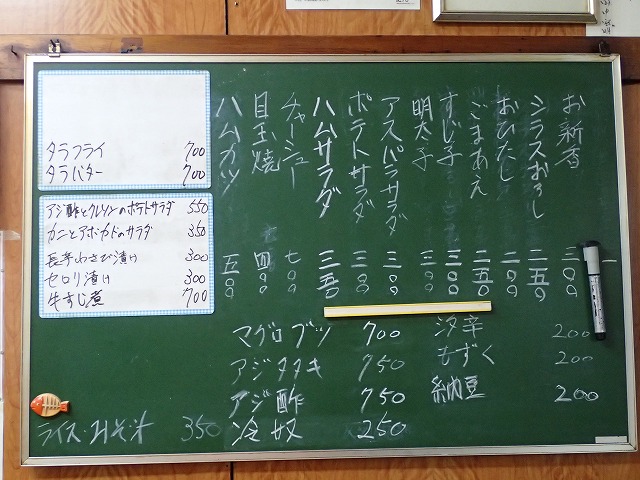 お新香 三〇〇
シラスおろし 二五〇
おひたし 二〇〇
ごまあえ 二五〇
すじ子 三〇〇
明太子 三〇〇
アスパラサラダ 三〇〇
ポテトサラダ 三〇〇
ハムサラダ 三五〇
チャーシュー 七〇〇
目玉焼 四〇〇
ハムカツ 五〇〇
タラフライ 700
タラバター 700
アジ酢とクレソンのポテトサラダ 550
カニとアボカドのサラダ 350
長芋わさび漬け 300
セロリ漬け 300
牛すじ煮 700
マグロブツ 700
アジタタキ 750
アジ酢 750
冷奴 250
汐辛 200
もずく 200
納豆 200
ライス・みそ汁 350